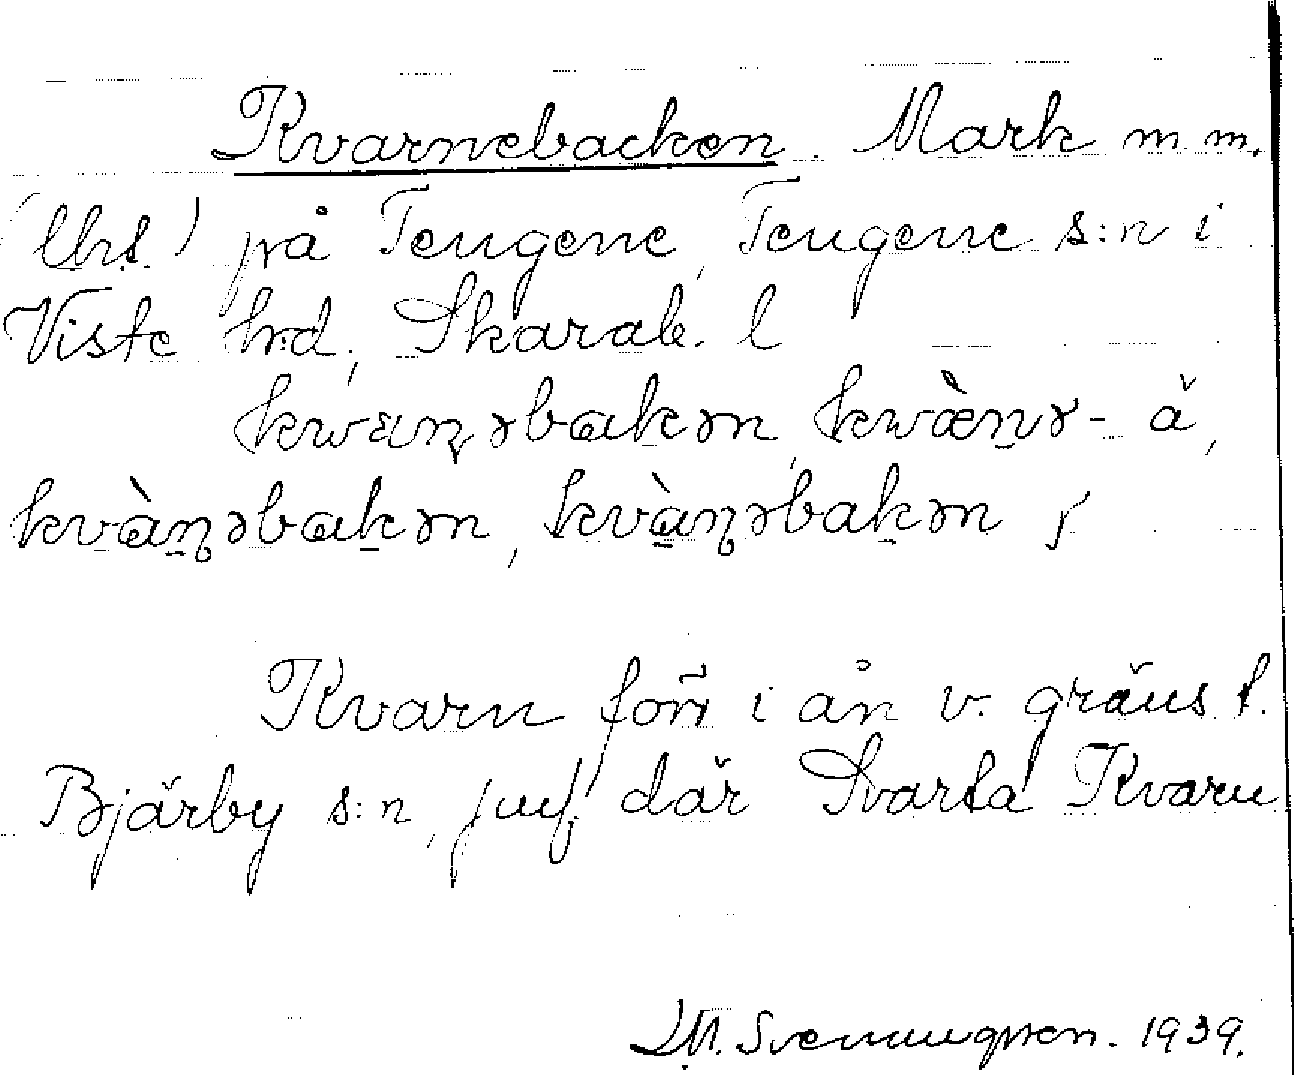 Kvarnebacken. Mark m m.
(lht) på Tengene, Tengene s:n i
Viste hd, Skarab. l
kwæɳəbakən, kwæ̀ɳə- å,
kvàɳəbakən, kvàɳəbakən
Kvarn förr i ån v. gräns t.
Bjärby s:n, jmf. där Svarta Kvarn
M. Svenungsson. 1939.